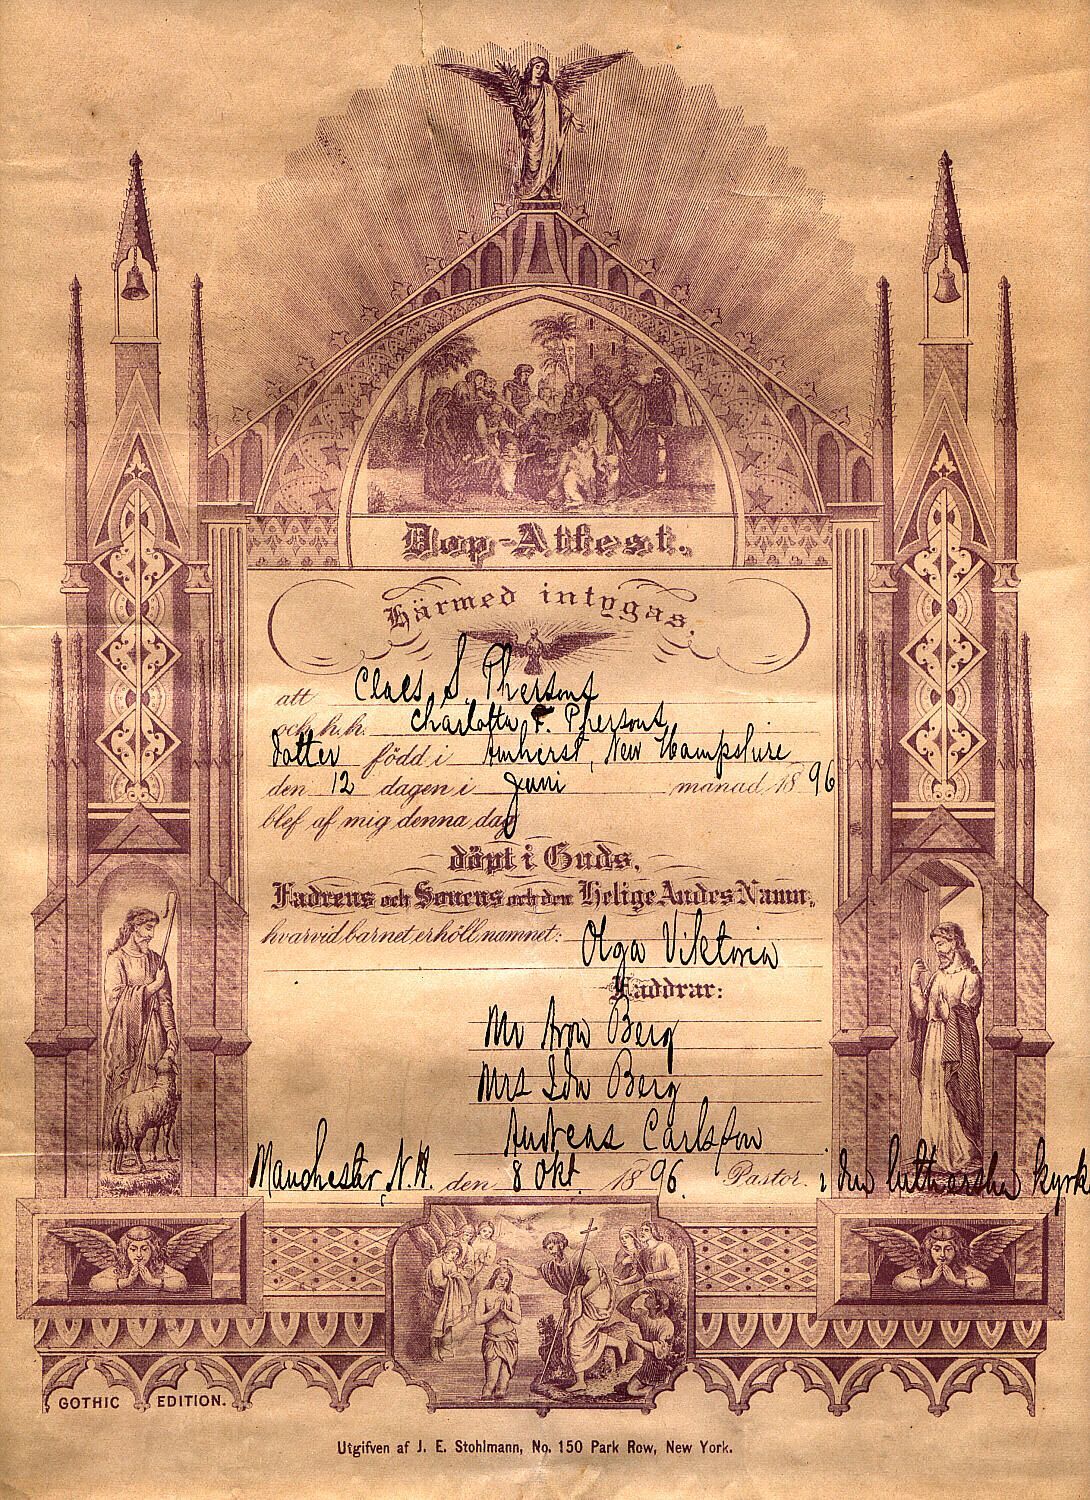 Dop-Attest.
Härmed intygas,
att Claes S. Phersons
och h.h. Charlotta F. Phersons
dotter född i Amherst, New Hampshire
den 12 dagen i Juni månad 1896
blef af mig denna dag
döpt i Guds,
Fadrens och Sonens och den Helige Andes Namn,
hvarvid barnet erhöll namnet: Olga Viktoria
Faddrar:
Mr Aron Berg
Mrs Ida Berg
Andreas Carlsson
Manchester, N.H. den 8 Okt. 1896. Pastor. i den lutherska kyrk
GOTHIC EDITION.
Utgifven af J. E. Stohlmann, No. 150 Park Row, New York.